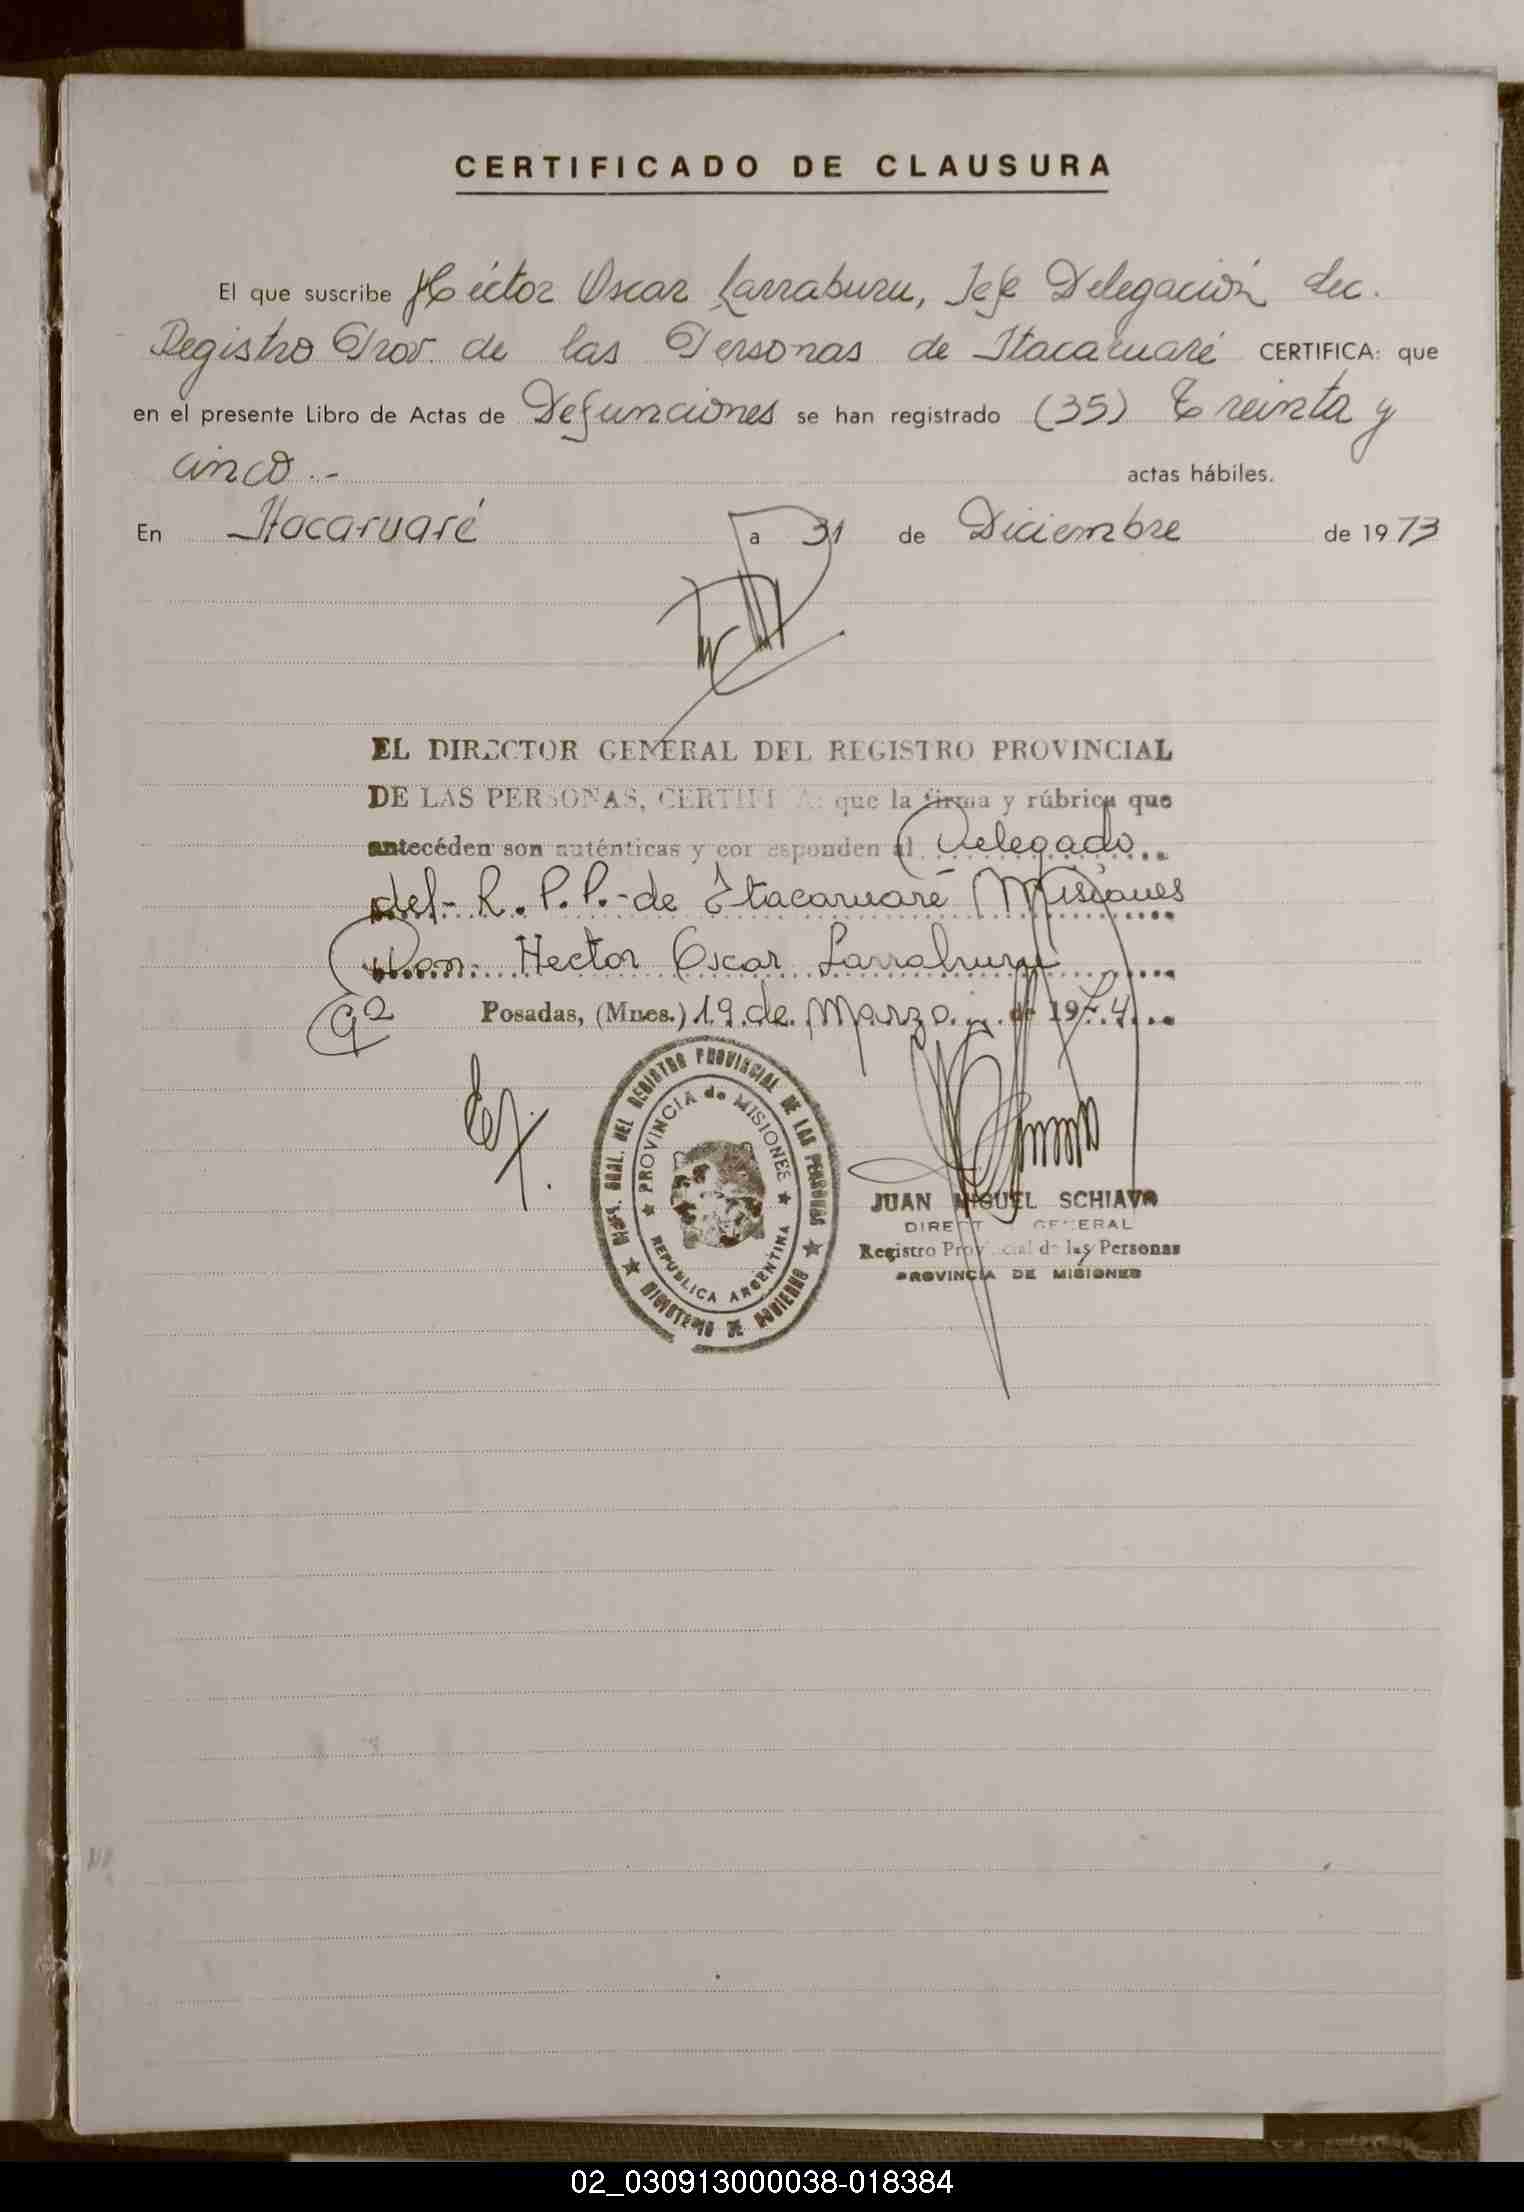 CERTIFICADO DE CLAUSURA
El que suscribe Héctor Oscar Larraburu, Jefe Delegación Sec.
Registro Prov. de las Personas de Itacaruaré CERTIFICA: que
en el presente Libro de Actas de Defunciones se han registrado (35) Treinta y
cinco.- actas hábiles.
En Itacaruaré a 31 de Diciembre de 1973
EL DIRECTOR GENERAL DEL REGISTRO PROVINCIAL
DE LAS PERSONAS, CERTIFICA: que la firma y rúbrica que
antecéden son auténticas y corresponden al Delegado
del- R.P.P.- de Itacaruaré Misiones
Don- Hector Oscar Larraburu
Posadas, (Mnes.) 19 de Marzo de 1974
DEL REGISTRO PROVINCIAL DE LAS PERSONAS
PROVINCIA de MISIONES
REPUBLICA ARGENTINA
MINISTERIO DE GOBIERNO
JUAN MIGUEL SCHIAVO
DIRECTOR GENERAL
Registro Provincial de las Personas
PROVINCIA DE MISIONES
02_030913000038-018384